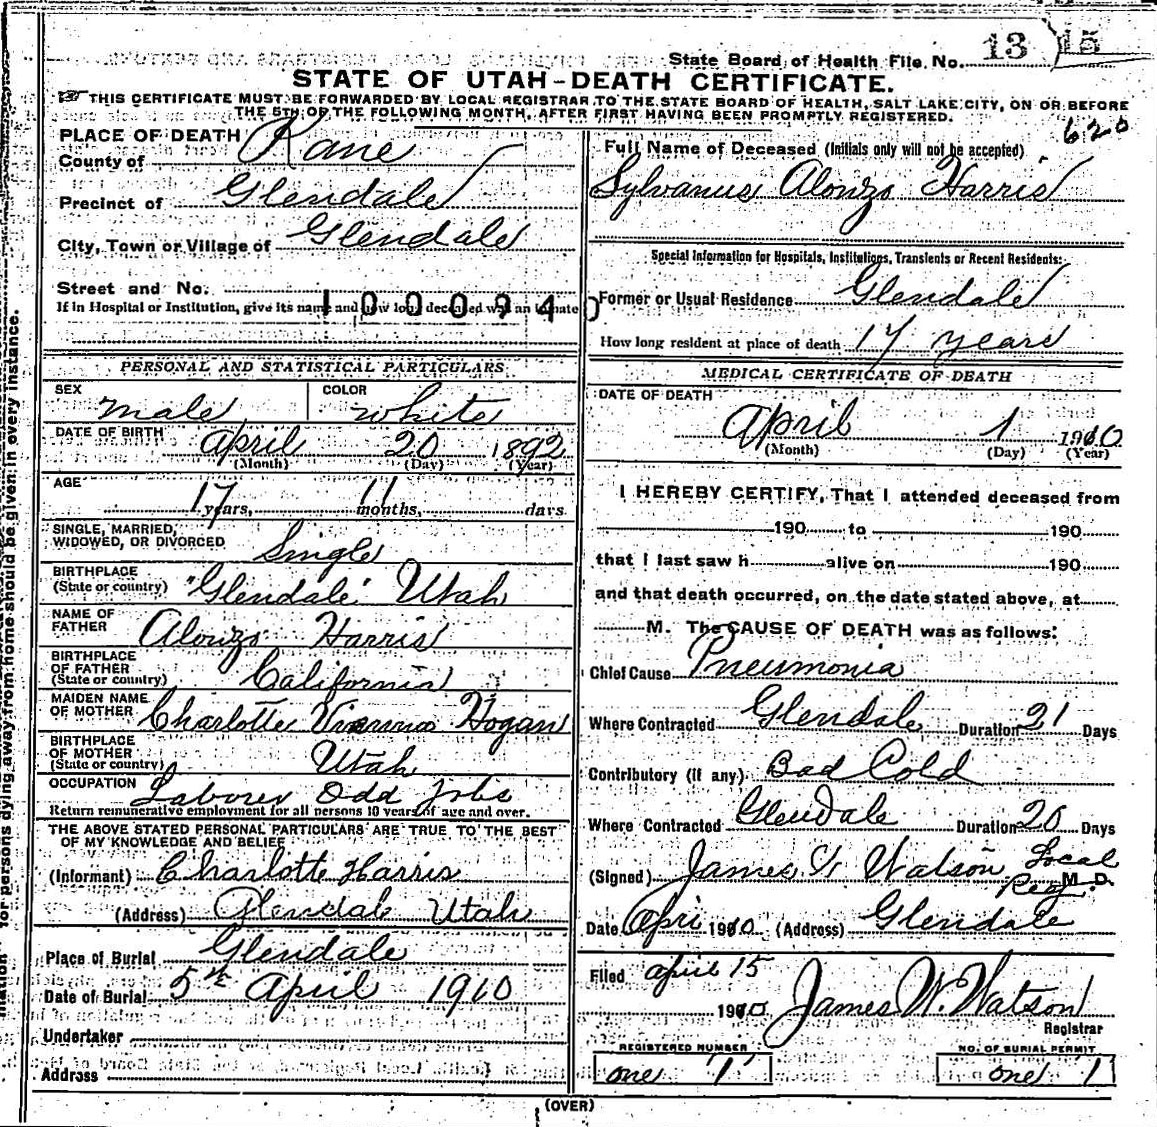 State Board of Health File No. 13 15
STATE OF UTAH-DEATH CERTIFICATE.
THIS CERTIFICATE MUST BE FORWARDED BY LOCAL REGISTRAR TO THE STATE BOARD OF HEALTH, SALT LAKE CITY, ON OR BEFORE
THE 5TH OF THE FOLLOWING MONTH, AFTER FIRST HAVING BEEN PROMPTLY REGISTERED.
620
PLACE OF DEATH
County of Kane
Precinct of Glendale
City, Town or Village of Glendale
Street and No.
If in Hospital or Institution, give its name and how long deceased was an inmate
1000940
PERSONAL AND STATISTICAL PARTICULARS
SEX male COLOR white
DATE OF BIRTH April 20 1892
(Month) (Day) (Year)
AGE
17 years, 11 months, days
SINGLE, MARRIED,
WIDOWED, OR DIVORCED Single
BIRTHPLACE
(State or country) "Glendale" Utah
NAME OF
FATHER Alonzo Harris
BIRTHPLACE
OF FATHER
(State or country) California
MAIDEN NAME
OF MOTHER Charlotte Hogan
BIRTHPLACE
OF MOTHER
(State or country) Utah
OCCUPATION Laborer Odd Jobs
Return remunerative employment for all persons 10 years of age and over.
THE ABOVE STATED PERSONAL PARTICULARS ARE TRUE TO THE BEST
OF MY KNOWLEDGE AND BELIEF
(Informant) Charlotte Harris
(Address) Glendale Utah
Place of Burial Glendale
Date of Burial 5th April 1910
Undertaker
Address
Full Name of Deceased (Initials only will not be accepted)
Sylvanus Alonzo Harris
Special Information for Hospitals, Institutions, Transients or Recent Residents:
Former or Usual Residence Glendale
How long resident at place of death 17 years
MEDICAL CERTIFICATE OF DEATH
DATE OF DEATH
April 1 1910
(Month) (Day) (Year)
I HEREBY CERTIFY, That I attended deceased from
190 to 190
that I last saw h alive on 190
and that death occurred, on the date stated above, at
M. The CAUSE OF DEATH was as follows:
Chief Cause Pneumonia
Where Contracted Glendale Duration 21 Days
Contributory (if any) Bad Cold
Where Contracted Glendale Duration 20 Days
(Signed) James W Watson Local Reg M.D.
Date Apri 1910 (Address) Glendale
Filed april 15
1910 James W. Watson
Registrar
REGISTERED NUMBER
one 1
NO. OF BURIAL PERMIT
one 1
(OVER)
for persons dying away from home should be given in every instance.